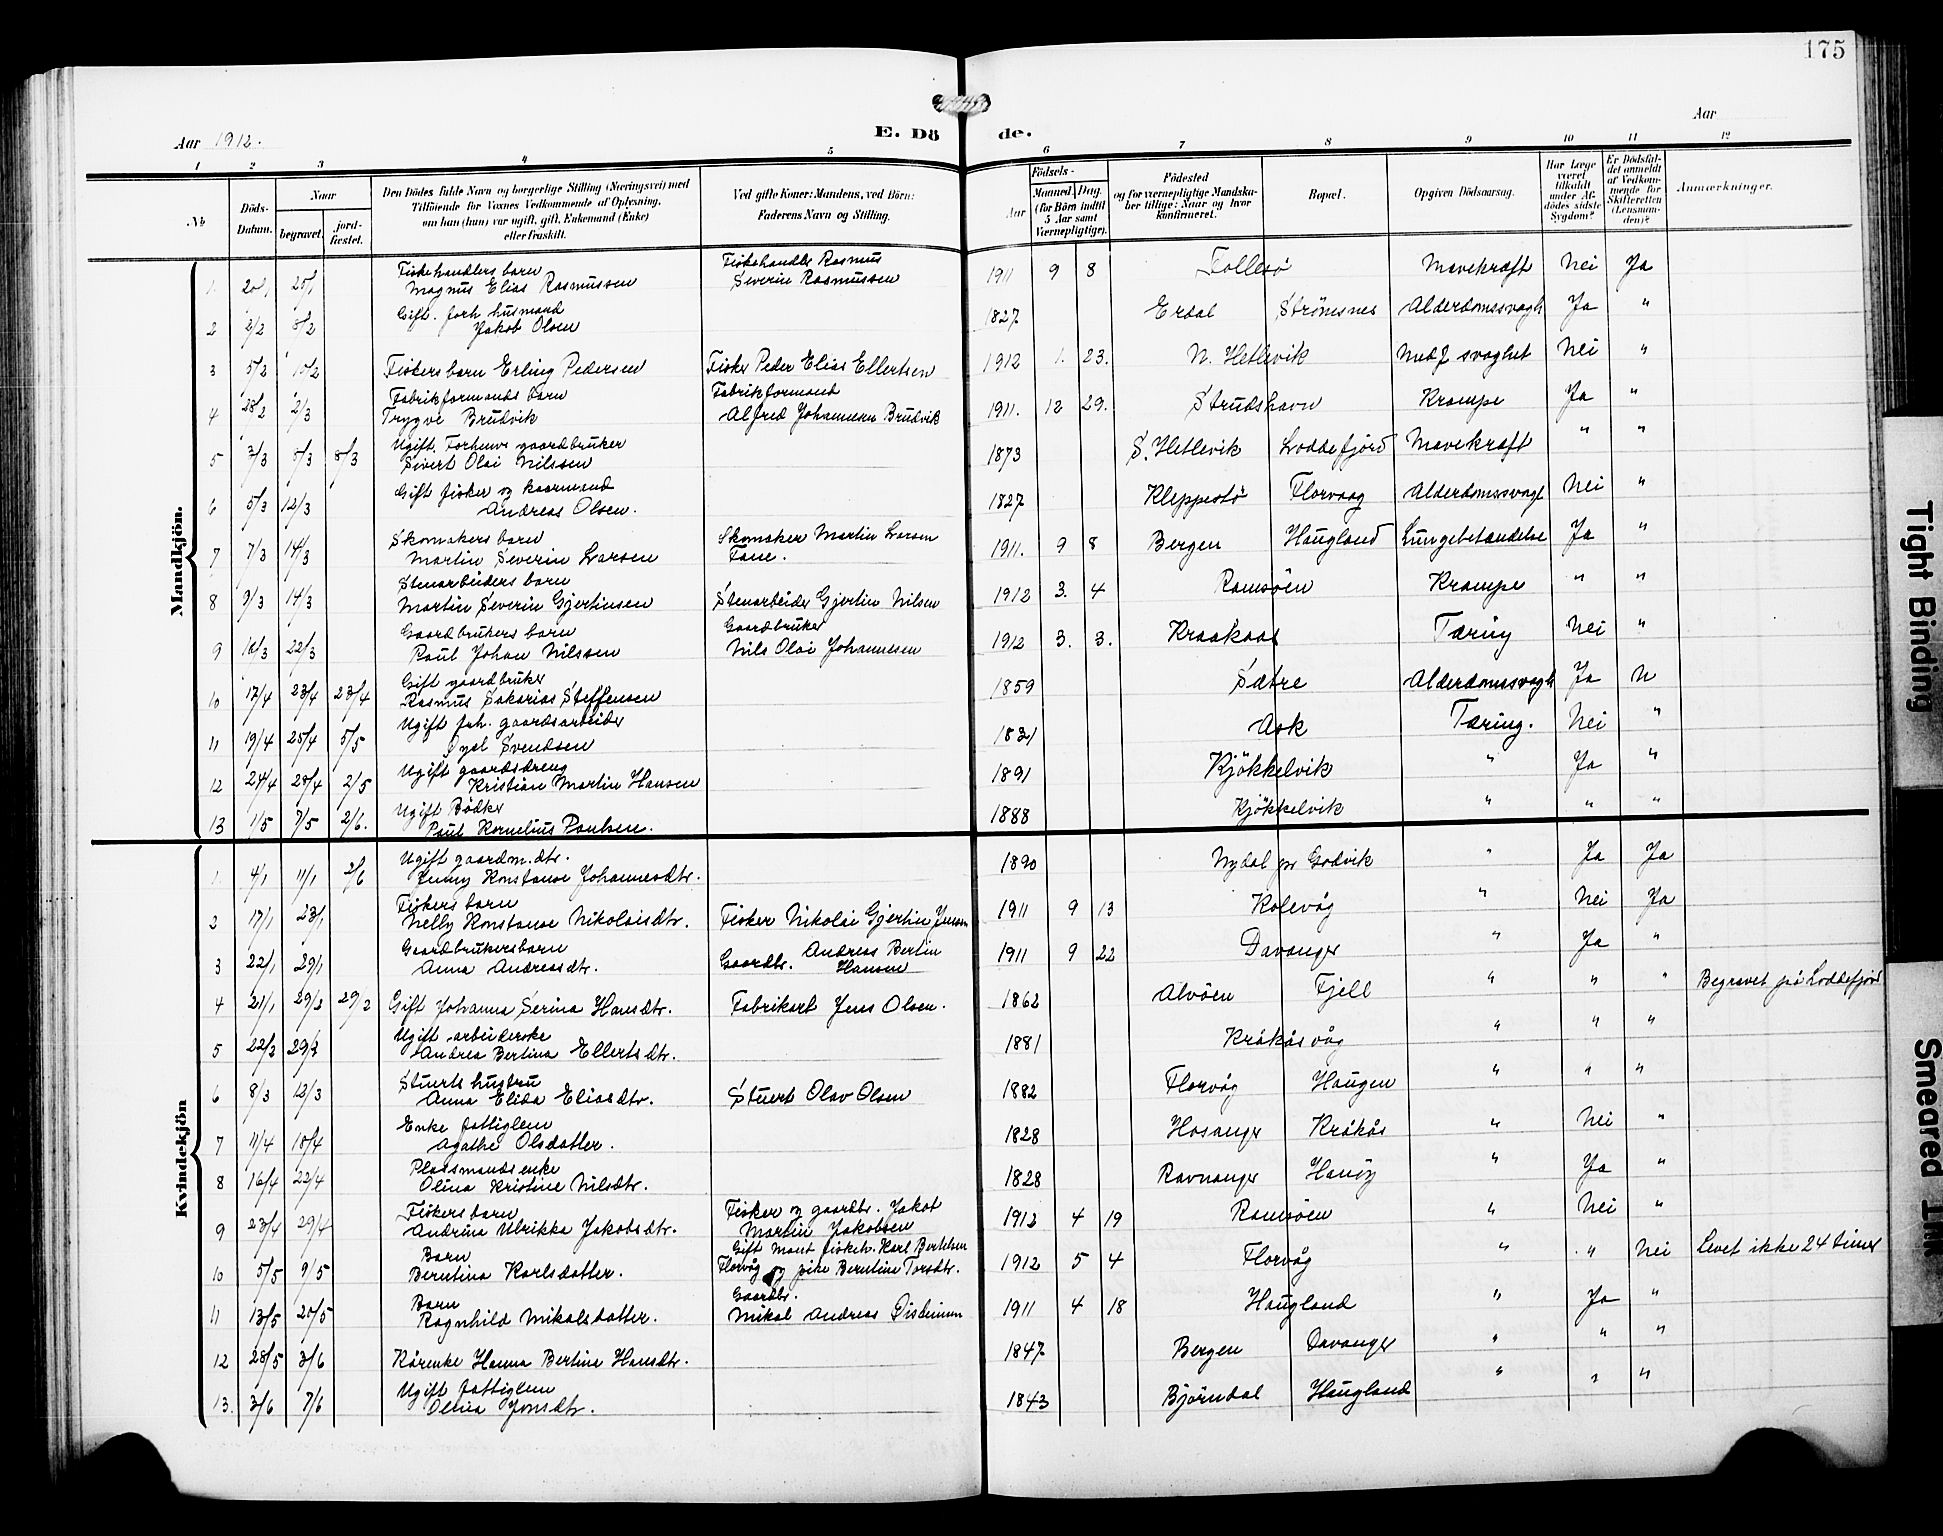 175
Aar 1912.
E. Dö de.
Aar
1 2 3 4 5 6 7 8 9 10 11 12
No
Döds-Datum.
Naar begravet. jord-fæstet.
Den Dödes fulde Navn og borgerlige Stilling (Næringsvei) med Tilföiende for Voxnes Vedkommende af Oplysning, om han (hun) var ugift, gift, Enkemand (Enke) eller fraskilt.
Ved gifte Koner: Mandens, ved Börn: Faderens Navn og Stilling.
Födsels-
Aar
Maaned. Dag.
(for Börn indtil 5 Aar samt Værnepligtige).
Födested og for værnepligtige Mandska-ber tillige: Naar og hvor konfirmeret.
Bopæl.
Opgiven Dödsaarsag.
Har Læge været tilkaldt under Af-dödes sidste Sygdom?
Er Dödsfal-det anmeldt af Vedkom-mende for Skifteretten (Lensman-den)?
Anmærkninger.
Mandkjön.
1 20/1 25/1 Fiskehandlers barn Magnus Elias Rasmussen Fiskehandler Rasmus Severin Rasmussen 1911 9 8 Follesö Mavekræft Nei Ja
2 2/2 8/2 Gift. forh. husmand Jakob Olsen 1827 Erdal Strömsnes Alderdomssvagh Ja "
3 5/2 10/2 Fiskersbarn Erling Pedersen Fisker Peder Elias Ellertsen 1912 1. 23. N. Hetlevik Medf svaghet Nei "
4 28/2 2/3 Fabrikformands barn Trygve Brudvik Fabrikformand Alfred Johannesen Brudvik 1911. 12 29. Strudshavn Krampe Ja "
5 3/3 8/3 8/3 Ugift. Forhenv. gaardbruker Sivert Olai Nilssen 1873 S. Hetlevik Loddefjord Mavekræft " "
6 5/3 12/3 Gift fisker og kaarmand Andreas Olsen. 1827 Kleppestö Florvaag Alderdomssvagh Nei "
7 7/3 14/3 Skomakers barn Martin Severin Larsen Skomaker Martin Larsen Fane. 1911. 9 8 Bergen Haugland Lungebetændelse Ja "
8 9/3 14/3 Stenarbeiders barn Martin Severin Gjertinsen Stenarbeider Gjertin Nilsen 1912 3. 4 Ramsöen Krampe " "
9 16/3 22/3 Gaardbrukers barn Paul Johan Nilssen Gaardbruker Nils Olai Johannesen 1912 3. 3. Kraakaas Tæring Nei "
10 17/4 23/4 23/4 Gift gaardbruker Rasmus Sakarias Steffensen 1859 Sætre Alderdomssvagh Ja "
11 19/4 25/4 5/5 Ugift forh. gaardsarbeider Svendsen 1831 Ask Tæring. Nei "
12 24/4 28/4 2/5 Ugift gaardsdreng Kristian Martin Hansen 1891 Kjökkelvik " Ja "
13 1/5 7/5 2/6. Ugift Bödker Paul Kornelius Paulsen. 1888 Kjökkelvik " " "
Kvindekjön
1 4/1 11/1 2/6 Ugift gaardm.dtr. Jenny Konstanse Johannesdtr. 1890 Nydal pr Godvik " Ja Ja
2 17/1 23/1 Fiskers barn Nelly Konstanse Nikolaisdtr. Fisker Nikolai Gjertin Jensen 1911 9 13 Kolevåg " Nei Ja
3 22/1 29/1 Gaardbrukersbarn Anna Andreasdtr. Gaardbr. Andreas Bertin Hansen 1911 9 22 Davanger " Ja "
4 21/1 29/2 29/2 Gift Johanna Serina Hansdtr. Fabrikarb Jens Olsen. 1862 Alvöen Fjell " " " Begravet på Loddefjord
5 22/2 29/2 Ugift arbeiderske Andrea Bertina Ellertsdtr. 1881 Kråkåsvåg " " "
6 8/3 12/3 Stuerts hustru Anna Elida Eliasdtr. Stuert Olav Olsen 1882 Florvåg Haugen " " "
7 11/4 18/4 Enke fattiglem Agathe Olsdatter. 1828 Hosanger Kråkås " Nei "
8 16/4 22/4 Pladsmands enke Olina Kristine Nilsdtr. 1828 Ravnanger Hanöy " Ja "
9 23/4 29/4 Fiskersbarn Andrina Ulrikka Jakobsdtr. Fisker og gaardbr. Jakob Martin Jakobsen 1912 4 19 Ramsöen " Nei "
10 5/5 9/5 Barn Berntina Karlsdatter. Gift mand fiskeh. Karl Bertelsen Florvåg og pike Berntine Torsdtr. 1912 5 4 Florvåg " " Nei Levet ikke 24 timer
11 13/5 20/5 Barn Ragnhild Mikalsdatter. Gaardbr. Mikal Andreas 1911 4 18 Haugland " Ja "
12 28/5 3/6 Kårenke Hanna Bertine Hansdtr. 1847 Bergen Davanger " " "
13. 3/6 7/6 Ugift fattiglem Olina Jonsdtr. 1843 Björndal Haugland " " "
Tight Binding
Smeared Ink